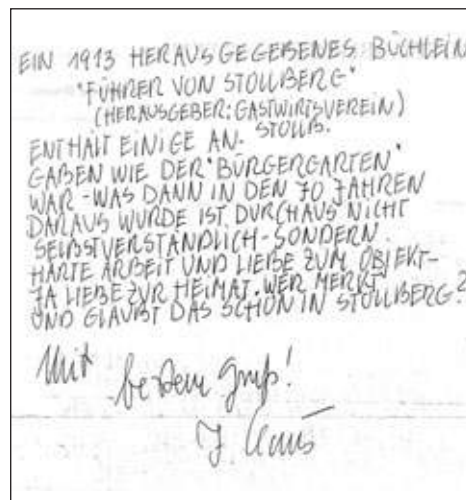 EIN 1913 HERAUSGEGEBENES BÜCHLEIN
"FÜHRER VON STOLLBERG"
(HERAUSGEBER: GASTWIRTSVEREIN)
STOLLB.
ENTHÄLT EINIGE AN-
GABEN WIE DER "BÜRGERGARTEN"
WAR - WAS DANN IN DEN 70 JAHREN
DARAUS WURDE IST DURCHAUS NICHT
SELBSTVERSTÄNDLICH - SONDERN
HARTE ARBEIT UND LIEBE ZUM OBJEKT -
JA LIEBE ZUR HEIMAT. WER MERKT
UND GLAUBT DAS SCHON IN STOLLBERG?
Mit
bestem Gruß!
J.